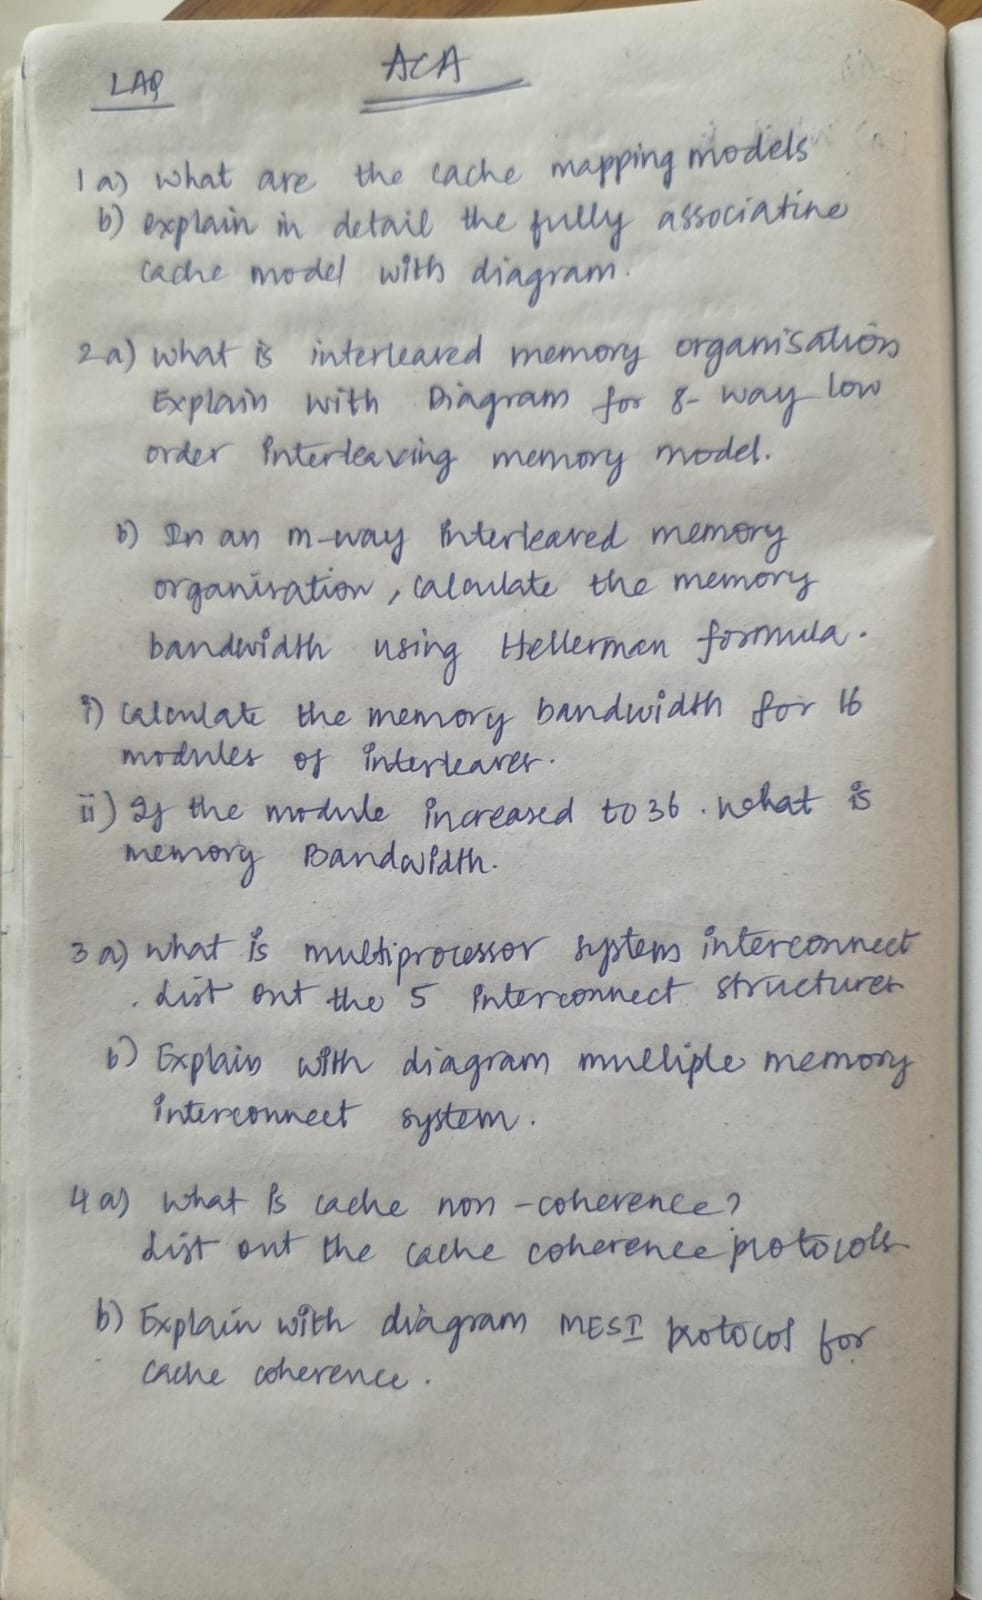 LAQ
ACA
1 a) What are the cache mapping models
b) explain in detail the fully associative
cache model with diagram.
2 a) What is interleaved memory organisation
Explain with Diagram for 8-way low
order Interleaving memory model.
b) In an m-way Interleaved memory
organisation, calculate the memory
bandwidth using Hellerman formula.
i) Calculate the memory bandwidth for 16
modules of interleaver.
ii) If the module increased to 36. What is
memory Bandwidth.
3 a) What is multiprocessor system interconnect
. List out the 5 Interconnect structures
b) Explain with diagram multiple memory
interconnect system.
4 a) What is cache non-coherence?
List out the cache coherence protocols
b) Explain with diagram MESI protocol for
cache coherence.